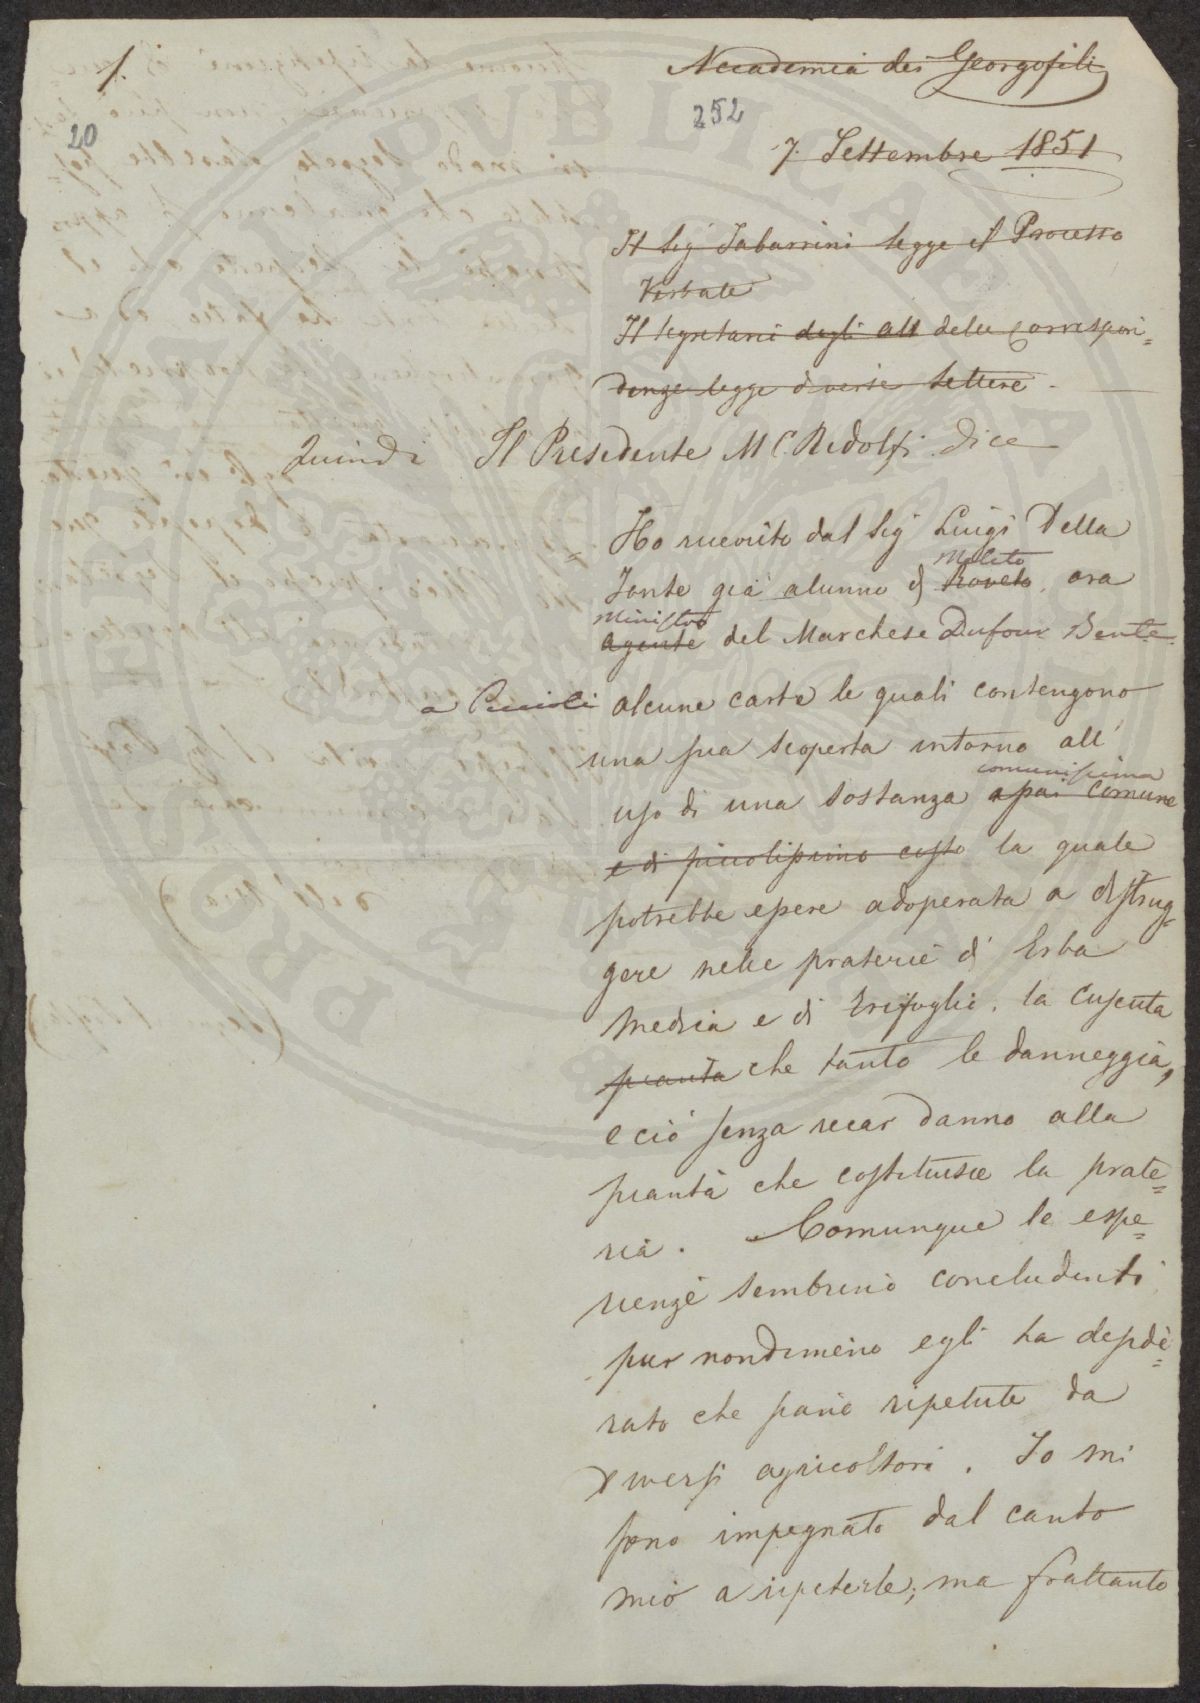 1.
20
Accademia dei Georgofili
252
7. Settembre 1851
Il Sig Tabarrini legge il Processo
Verbale
Il Segretario degli atti delle Corrispon=
denze legge diverse lettere
Quindi Il Presidente M C. Ridolfi dice
= Ho ricevuto dal Sig Luigi Della
Meleto
Fonte già alunno di Roveto, ora
Ministro
agente del Marchese Dufour Berte
a alcune carte le quali contengono
una sua scoperta intorno all'
comunissima
uso di una sostanza assai comune
e di piccolissimo costo la quale
potrebbe essere adoperata a distrug=
gere nelle praterie di Erba
Medica e di Trifoglio, la Cuscuta
pianta che tanto le danneggia,
e ciò senza recar danno alla
pianta che costituisce la prate=
ria. Comunque le espe=
rienze sembrino concludenti
pur nondimeno egli ha deside=
rato che siano ripetute da
diversi agricoltori. Io mi
sono impegnato dal canto
mio a ripeterle; ma frattanto